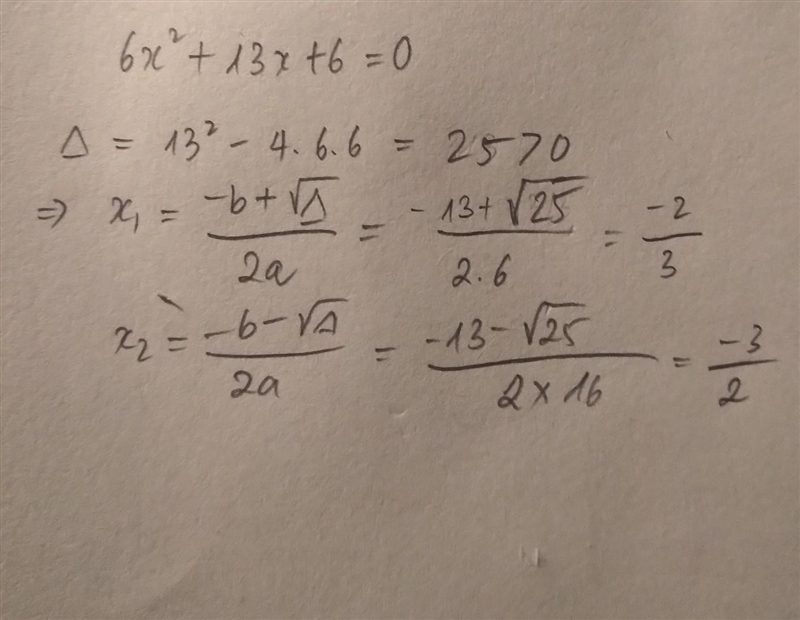 6x² + 13x + 6 = 0
Δ = 13² - 4.6.6 = 25 > 0
⇒ x₁ = (-b + √Δ)/(2a) = (-13 + √25)/(2.6) = -2/3
x₂ = (-b - √Δ)/(2a) = (-13 - √25)/(2 × 16) = -3/2